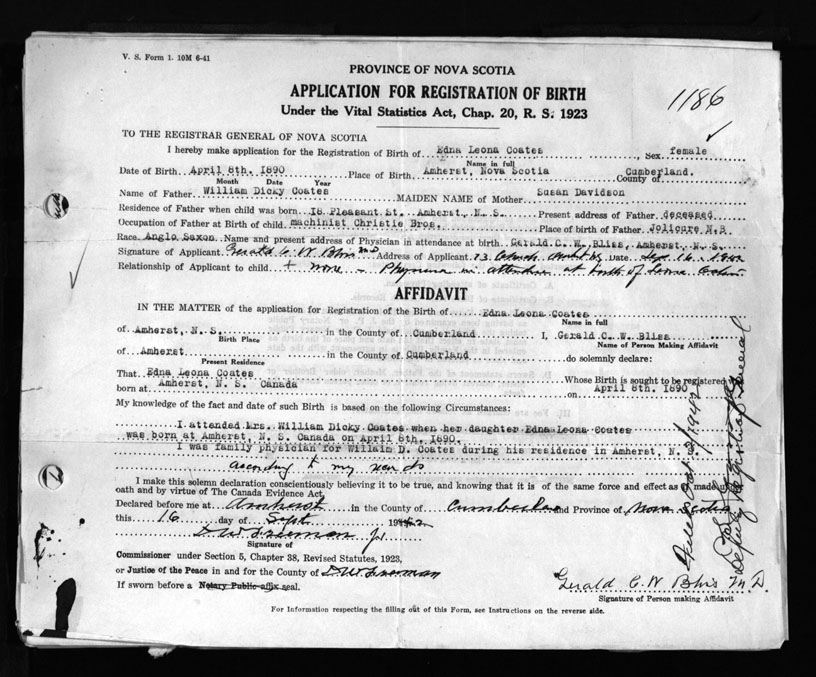 V. S. Form 1. 10M 6-41
PROVINCE OF NOVA SCOTIA
APPLICATION FOR REGISTRATION OF BIRTH
1186
Under the Vital Statistics Act, Chap. 20, R. S. 1923
TO THE REGISTRAR GENERAL OF NOVA SCOTIA
I hereby make application for the Registration of Birth of Edna Leona Coates, Sex female
Name in full
Date of Birth April 8th. 1890 Place of Birth Amherst, Nova Scotia County of Cumberland.
Month Date Year
Name of Father William Dicky Coates MAIDEN NAME of Mother Susan Davidson
Residence of Father when child was born 18 Pleasant St. Amherst, N. S. Present address of Father deceased
Occupation of Father at Birth of child machinist Christie Bros. Place of birth of Father Jolicure N.B
Race Anglo Saxon Name and present address of Physician in attendance at birth Gerald C. W. Bliss, Amherst, N. S.
Signature of Applicant Gerald C W Bliss MD Address of Applicant 73 Church Amherst NS Date Sept 16 1942
Relationship of Applicant to child + none - Physician in attendance at birth of Leona Coates
AFFIDAVIT
IN THE MATTER of the application for Registration of the Birth of Edna Leona Coates
Name in full
of Amherst, N. S. in the County of Cumberland I, Gerald C. W. Bliss
Birth Place Name of Person Making Affidavit
of Amherst in the County of Cumberland do solemnly declare:
Present Residence
That Edna Leona Coates Whose Birth is sought to be registered
born at Amherst, N. S. Canada on April 8th. 1890
My knowledge of the fact and date of such Birth is based on the following Circumstances:
I attended Mrs. William Dicky Coates when her daughter Edna Leona Coates
was born at Amherst, N. S. Canada on April 8th. 1890.
I was family physician for Willaim D. Coates during his residence in Amherst, N. S.
according to my records
I make this solemn declaration conscientiously believing it to be true, and knowing that it is of the same force and effect as if made under
oath and by virtue of The Canada Evidence Act.
Declared before me at Amherst in the County of Cumberland and Province of Nova Scotia
this 16 day of Sept 1942
Signature of
Commissioner under Section 5, Chapter 38, Revised Statutes, 1923,
or Justice of the Peace in and for the County of
If sworn before a Notary Public affix seal.
Gerald C. W Bliss M.D.
Signature of Person making Affidavit
For Information respecting the filling out of this Form, see Instructions on the reverse side.
Filed Oct 2/1942
Deputy Registrar General